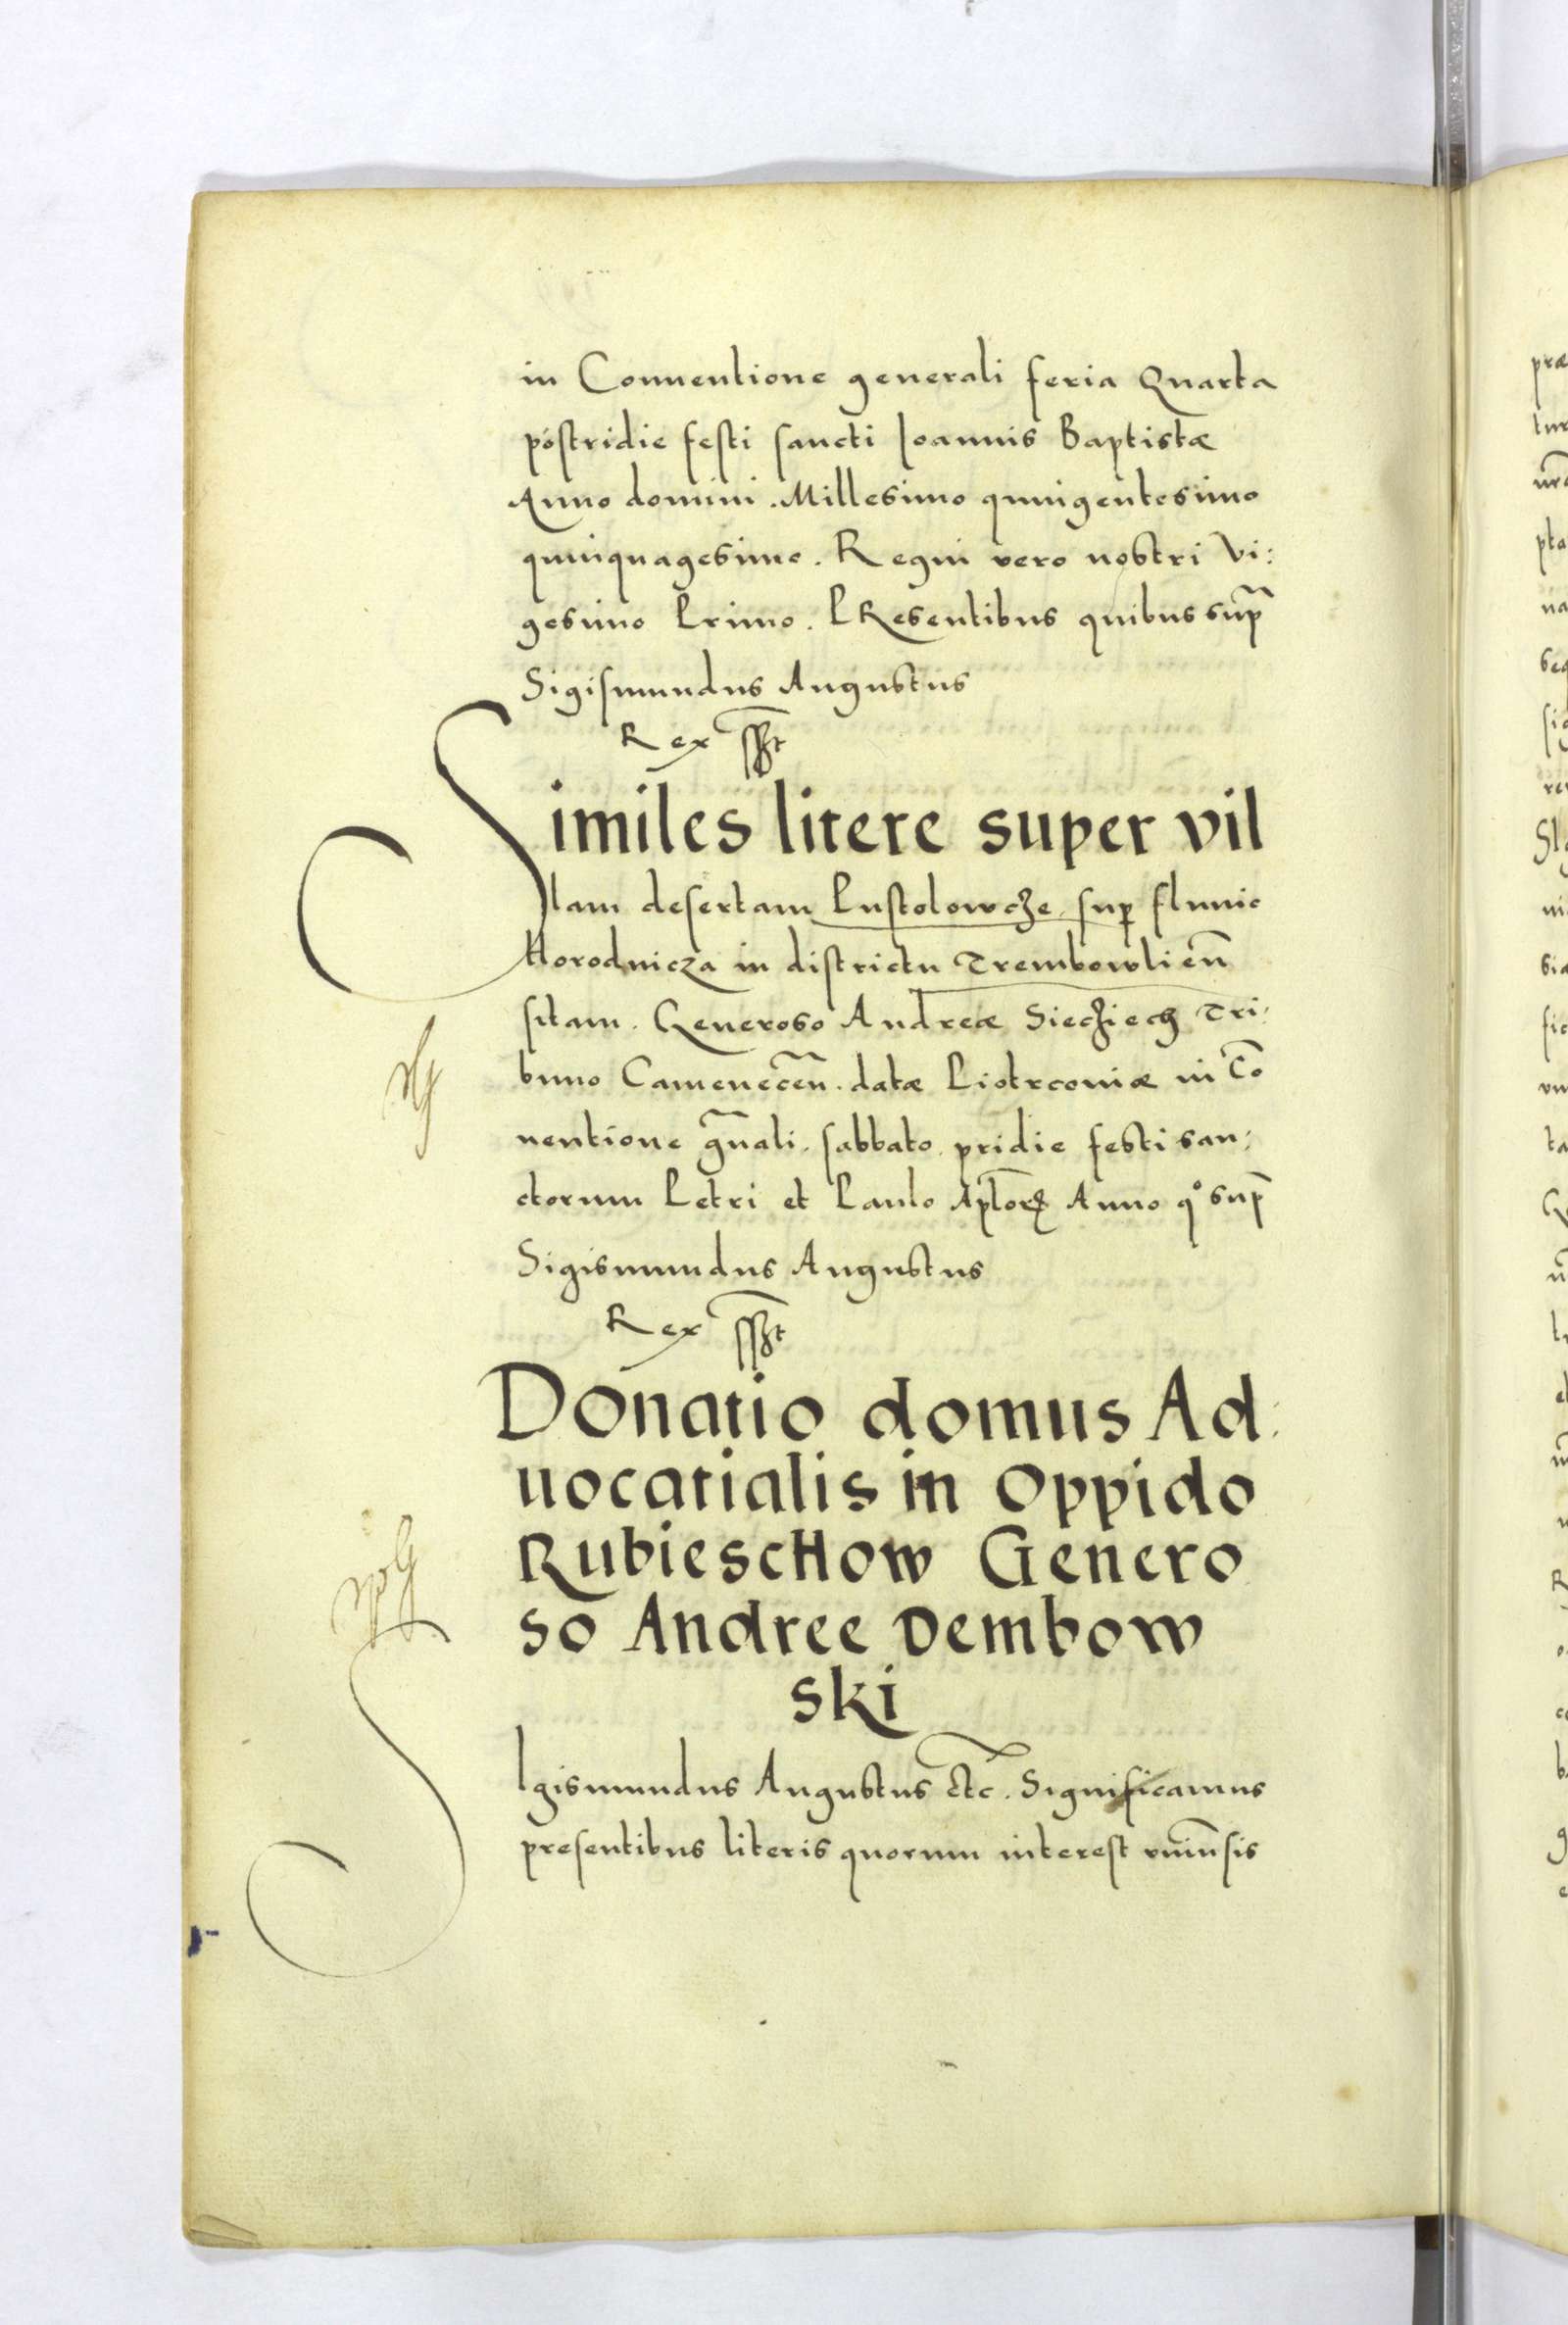 in Conuentione generali feria Quarta
postridie festi sancti Ioannis Baptistæ
Anno domini. Millesimo quingentesimo
quinquagesimo. Regni vero nostri Vi:
gesimo Primo. PResentibus quibus sup̄
Sigismundus Augustus
Rex sszt
Similes litere super vil
lam desertam Pustolowcze sup fluuio
Horodnicza in districtu Trembowlien̄
sitam. Generoso Andreæ Siecziech Tri:
buno Camenecen̄. datæ Piotrcouiæ in Cō
uentione gn̄ali. sabbato pridie festi san:
ctorum Petri et Paulo Apl̄oꝝ Anno qº sup̄
Sigismundus Augustus
Rex sszt
Donatio domus Ad:
uocatialis in Oppido
RubiescHow Genero
so Andree Dembow
ski
SIgismundus Augustus etc. Significamus
presentibus literis quorum interest vniūsis